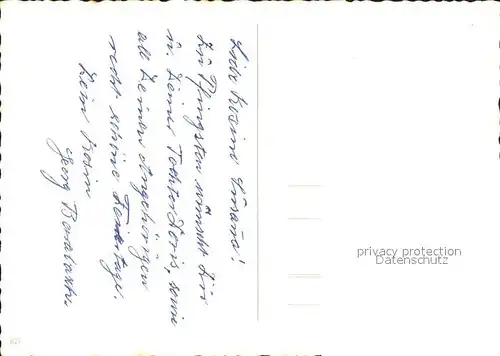 Liebe Kosine Susanne!
Zu Pfingsten wünscht Dir
u. Deiner Tochter Doris, sowie
all Deinen Angehörigen
recht schöne Feiertage.
Dein Kosin
Georg
privacy protection
Datenschutz